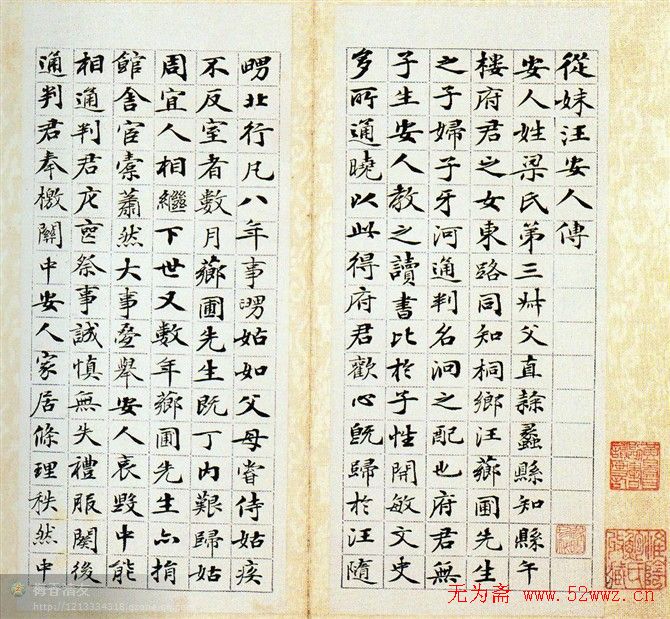 從妹汪安人傳
安人姓梁氏第三叔父直隸蠡縣知縣午
樓府君之女東路同知桐鄉汪薌圃先生
之子婦子牙河通判名泂之配也府君無
子生安人教之讀書比於子性開敏文史
多所通曉以此得府君歡心既歸於汪隨
舅北行凡八年事舅姑如父母嘗侍姑疾
不反室者數月薌圃先生既丁內艱歸姑
周宜人相繼下世又數年薌圃先生亦捐
館舍宦橐蕭然大事疊舉安人哀毀中能
相通判君庀喪祭事誠慎無失禮服闋後
通判君奉檄關中安人家居條理秩然中
梅香清友
http://1213334318.qzone.qq.com
无为斋 www.52wwz.cn